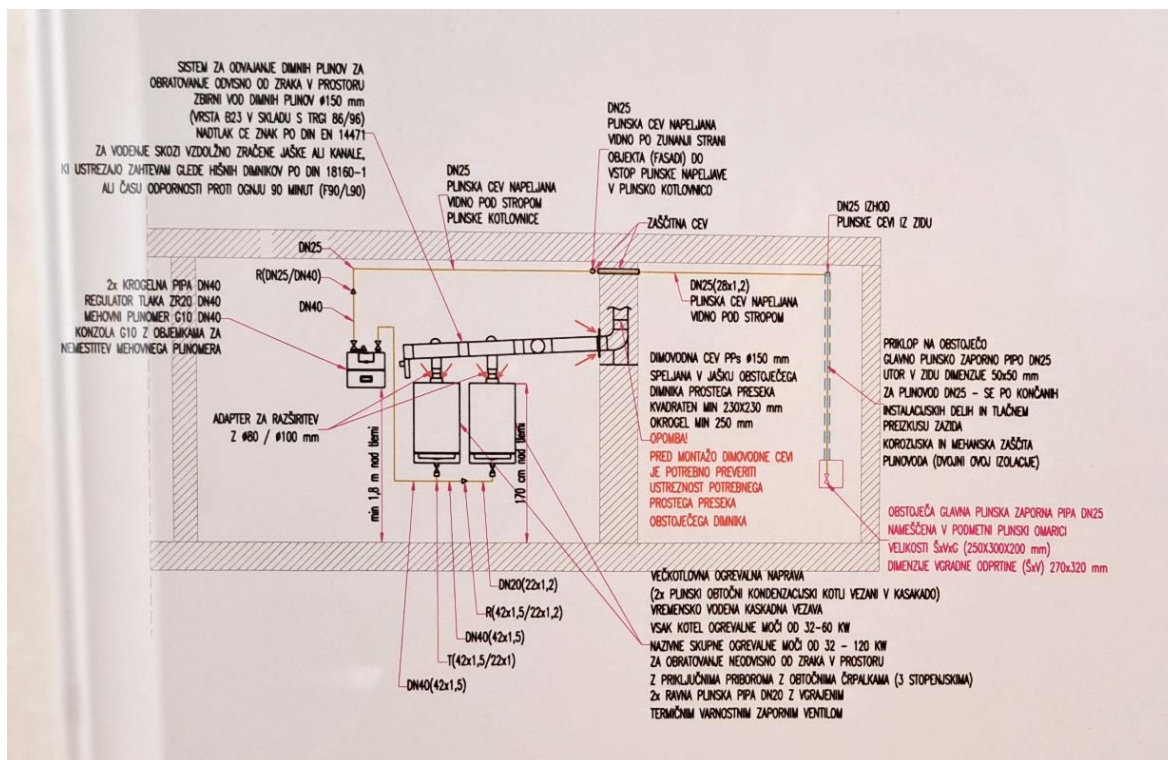 SISTEM ZA ODVAJANJE DIMNIH PLINOV ZA
OBRATOVANJE ODVISNO OD ZRAKA V PROSTORU
ZBIRNI VOD DIMNIH PLINOV ø150 mm
(VRSTA B23 V SKLADU S TRGI 86/96)
NADTLAK CE ZNAK PO DIN EN 14471
ZA VODENJE SKOZI VZDOLŽNO ZRAČENE JAŠKE ALI KANALE,
KI USTREZAJO ZAHTEVAM GLEDE HIŠNIH DIMNIKOV PO DIN 18160-1
ALI ČASU ODPORNOSTI PROTI OGNJU 90 MINUT (F90/L90)
DN25
PLINSKA CEV NAPELJANA
VIDNO POD STROPOM
PLINSKE KOTLOVNICE
DN25
PLINSKA CEV NAPELJANA
VIDNO PO ZUNANJI STRANI
OBJEKTA (FASADI) DO
VSTOP PLINSKE NAPELJAVE
V PLINSKO KOTLOVNICO
ZAŠČITNA CEV
DN25 IZHOD
PLINSKE CEVI IZ ZIDU
DN25
R(DN25/DN40)
DN40
2x KROGELNA PIPA DN40
REGULATOR TLAKA ZR20 DN40
MEHOVNI PLINOMER G10 DN40
KONZOLA G10 Z OBJEMKAMA ZA
NEMESTITEV MEHOVNEGA PLINOMERA
ADAPTER ZA RAZŠIRITEV
Z ø80 / ø100 mm
min 1,8 m nad tlemi
170 cm nad tlemi
DN25(28x1,2)
PLINSKA CEV NAPELJANA
VIDNO POD STROPOM
DIMOVODNA CEV PPs ø150 mm
SPELJANA V JAŠKU OBSTOJEČEGA
DIMNIKA PROSTEGA PRESEKA
KVADRATEN MIN 230X230 mm
OKROGEL MIN 250 mm
OPOMBA!
PRED MONTAŽO DIMOVODNE CEVI
JE POTREBNO PREVERITI
USTREZNOST POTREBNEGA
PROSTEGA PRESEKA
OBSTOJEČEGA DIMNIKA
PRIKLOP NA OBSTOJEČO
GLAVNO PLINSKO ZAPORNO PIPO DN25
UTOR V ZIDU DIMENZIJE 50x50 mm
ZA PLINOVOD DN25 - SE PO KONČANIH
INSTALACIJSKIH DELIH IN TLAČNEM
PREIZKUSU ZAZIDA
KOROZIJSKA IN MEHANSKA ZAŠČITA
PLINOVODA (DVOJNI OVOJ IZOLACIJE)
OBSTOJEČA GLAVNA PLINSKA ZAPORNA PIPA DN25
NAMEŠČENA V PODMETNI PLINSKI OMARICI
VELIKOSTI ŠxVxG (250X300X200 mm)
DIMENZIJE VGRADNE ODPRTINE (ŠxV) 270x320 mm
DN20(22x1,2)
R(42x1,5/22x1,2)
DN40(42x1,5)
T(42x1,5/22x1)
DN40(42x1,5)
VEČKOTLOVNA OGREVALNA NAPRAVA
(2x PLINSKI OBTOČNI KONDENZACIJSKI KOTLI VEZANI V KASAKADO)
VREMENSKO VODENA KASKADNA VEZAVA
VSAK KOTEL OGREVALNE MOČI OD 32-60 KW
NAZIVNE SKUPNE OGREVALNE MOČI OD 32 - 120 KW
ZA OBRATOVANJE NEODVISNO OD ZRAKA V PROSTORU
Z PRIKLJUČNIMA PRIBOROMA Z OBTOČNIMA ČRPALKAMA (3 STOPENJSKIMA)
2x RAVNA PLINSKA PIPA DN20 Z VGRAJENIM
TERMIČNIM VARNOSTNIM ZAPORNIM VENTILOM